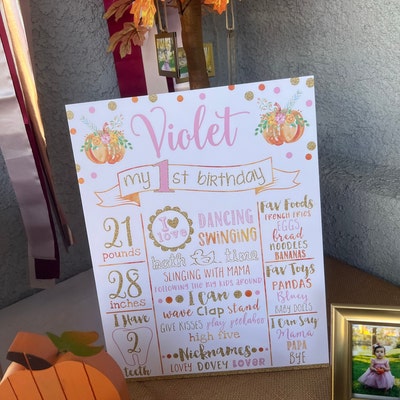 Violet
my 1st birthday
21
pounds
28
inches
I Have
2
teeth
I
love
DANCING
SWINGING
bath time
SLINGING WITH MAMA
FOLLOWING THE BIG KIDS AROUND
I Can
wave Clap stand
GIVE KISSES play peekaboo
high five
Nicknames
LOVEY DOVEY LOVER
Fav Foods
FRENCH FRIES
EGGS
bread
NOODLES
BANANAS
Fav Toys
PANDAS
Bluey
BABY DOLLS
I Can Say
MAMA
PAPA
BYE